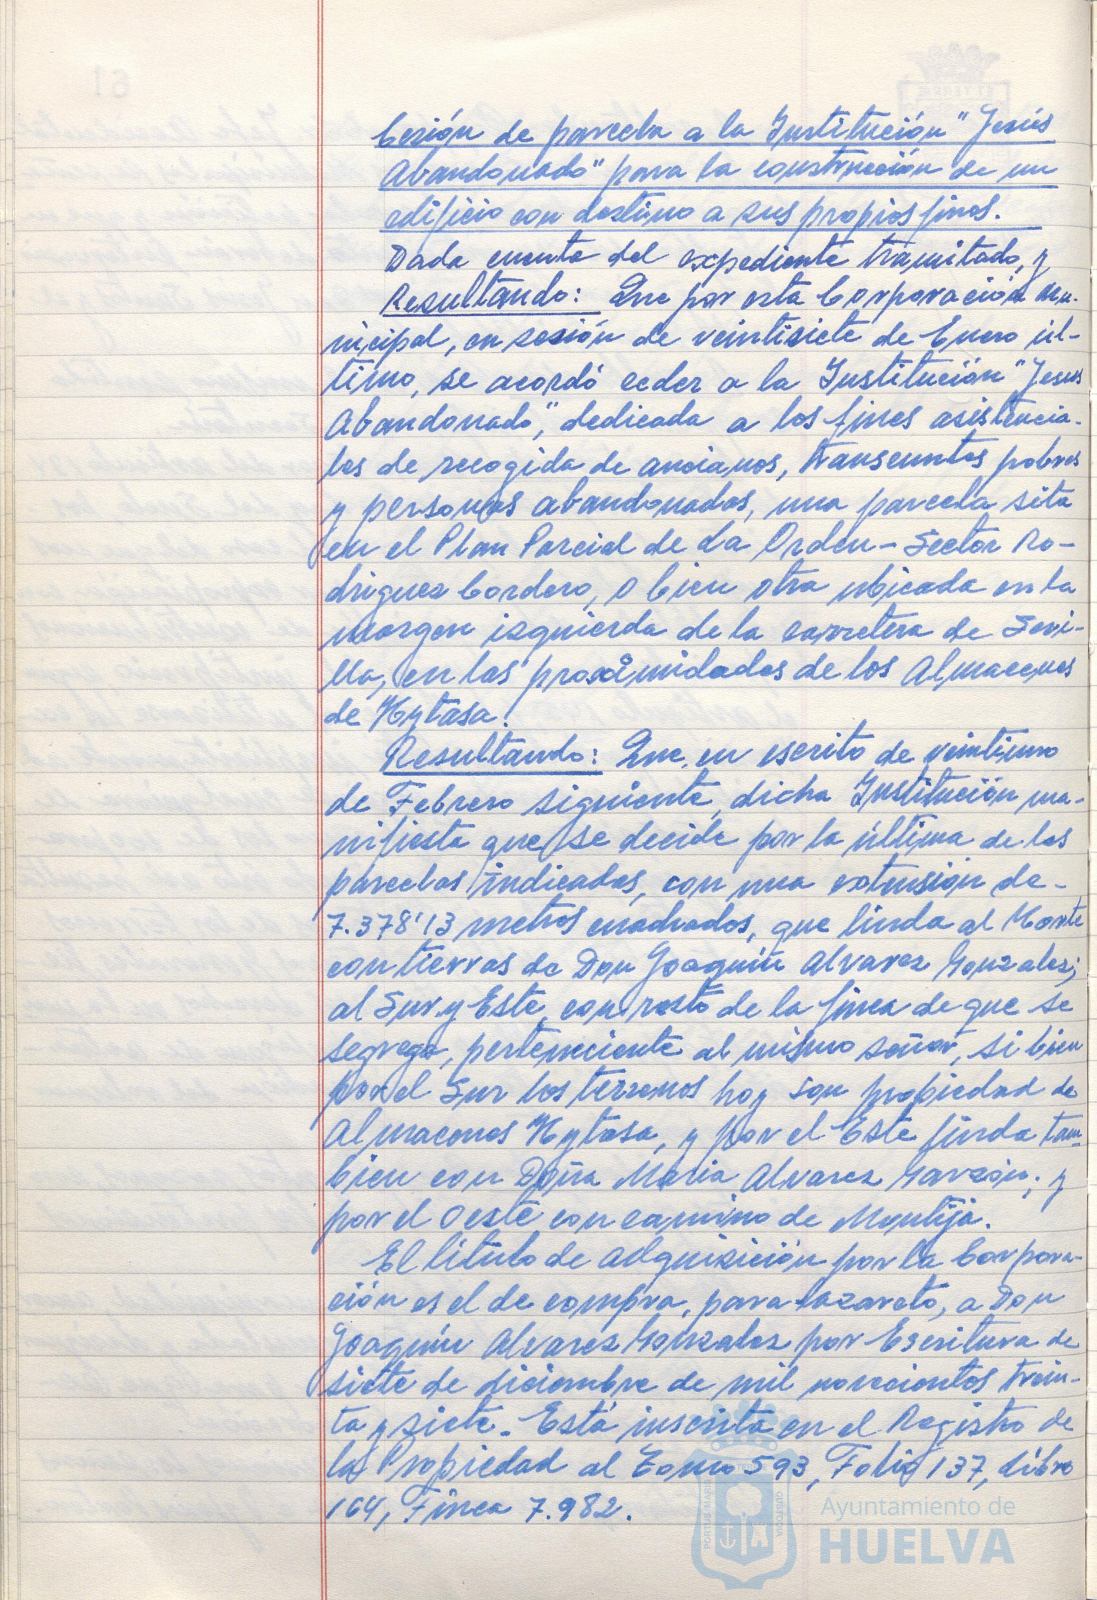 Cesión de parcela a la Institución "Jesús
Abandonado" para la construcción de un
edificio con destino a sus propios fines.
Dada cuenta del expediente tramitado, y
Resultando: Que por esta Corporación mu-
nicipal, en sesión de veintisiete de Enero úl-
timo, se acordó ceder a la Institución "Jesus
Abandonado", dedicada a los fines asistencia-
les de recogida de ancianos, transeuntes pobres
y personas abandonadas, una parcela sita
en el Plan Parcial de La Orden - Sector Ro-
driguez Cordero, o bien otra ubicada en la
margen izquierda de la carretera de Sevi-
lla, en las proximidades de los Almacenes
de Hytasa.
Resultando: Que, en escrito de veintiuno
de Febrero siguiente, dicha Institución ma-
nifiesta que se decide por la última de las
parcelas indicadas, con una extensión de-
7.378'13 metros cuadrados, que linda al Norte
con tierras de Don Joaquín Alvarez Gonzalez;
al Sur y Este, con resto de la finca de que se
segrega, perteneciente al mismo señor, si bien
por el Sur los terrenos hoy son propiedad de
Almacenes Hytasa, y por el Este linda tam-
bien con Doña Maria Alvarez Garzón; y
por el Oeste con camino de Montija.
El título de adquisición por la Corpora-
ción es el de compra, para Lazareto, a Don
Joaquín Alvarez Gonzalez por Escritura de
siete de diciembre de mil novecientos trein-
ta y siete. Está inscrita en el Registro de
la Propiedad al Tomo 593, Folio 137, Libro
164, Finca 7.982.
Ayuntamiento de
HUELVA